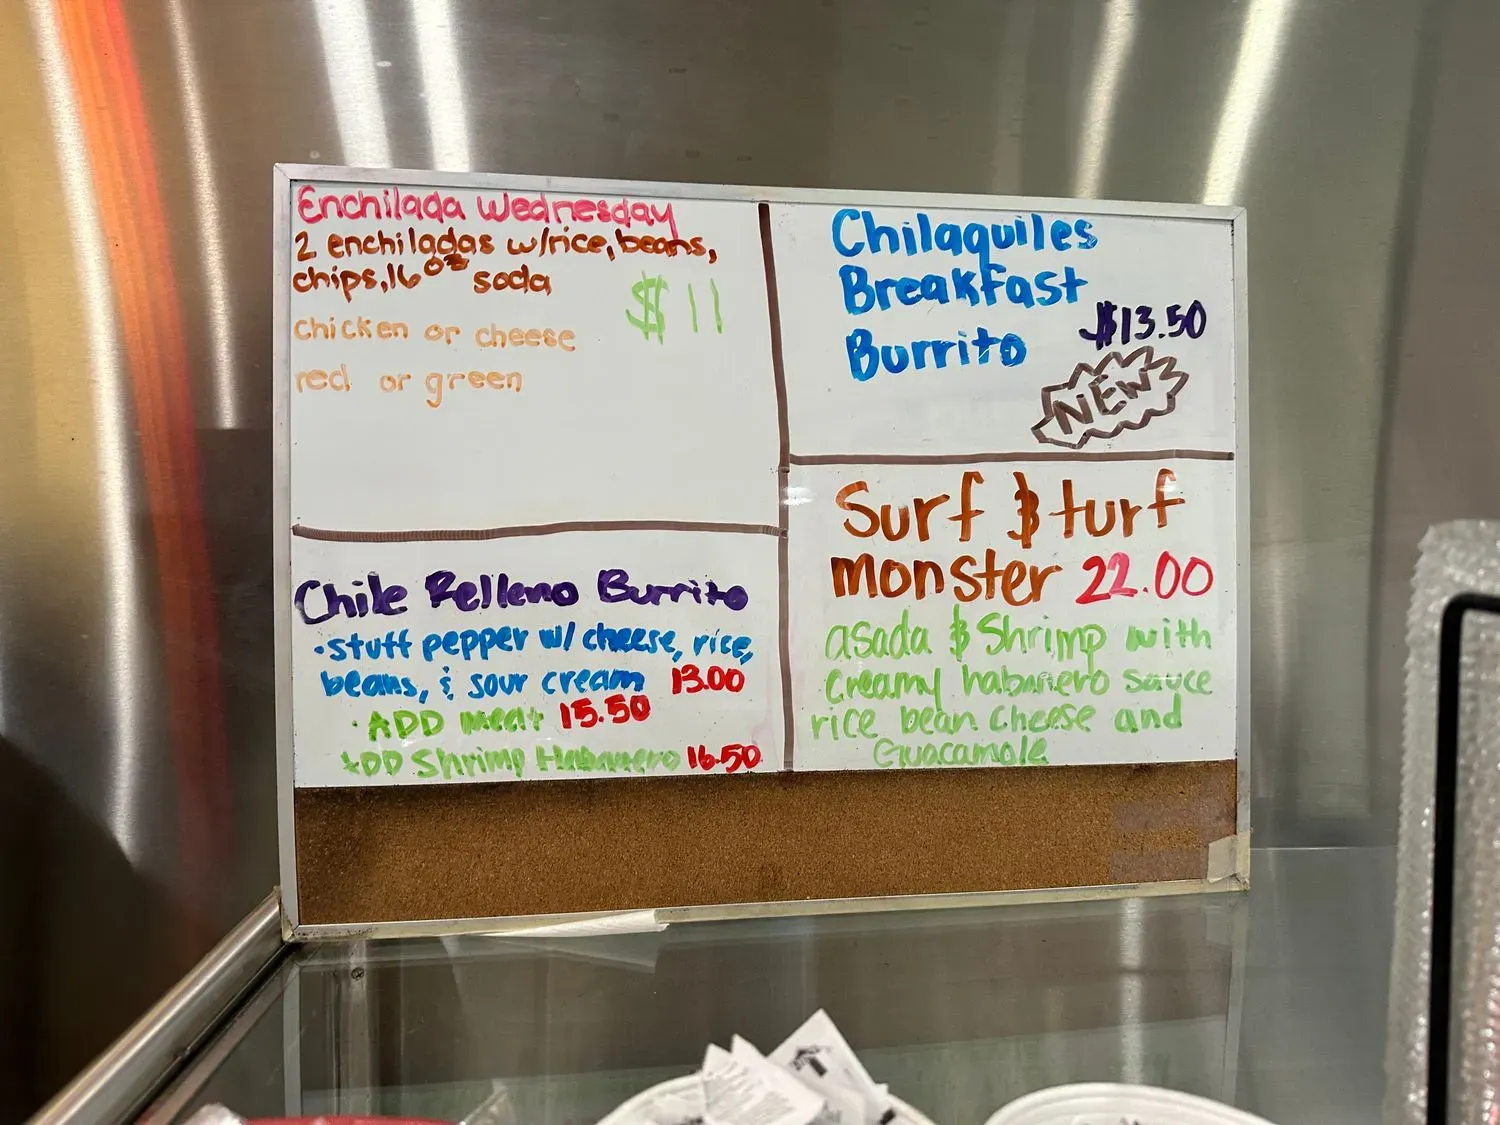 Enchilada Wednesday
2 enchiladas w/rice, beans,
chips, 16oz soda
$11
chicken or cheese
red or green
Chilaquiles
Breakfast
Burrito
$13.50
NEW
Chile Relleno Burrito
• stuff pepper w/ cheese, rice,
beans, & sour cream 13.00
• ADD meat 15.50
ADD Shrimp Habanero 16.50
Surf & turf
monster 22.00
asada & Shrimp with
creamy habanero sauce
rice bean cheese and
Guacamole